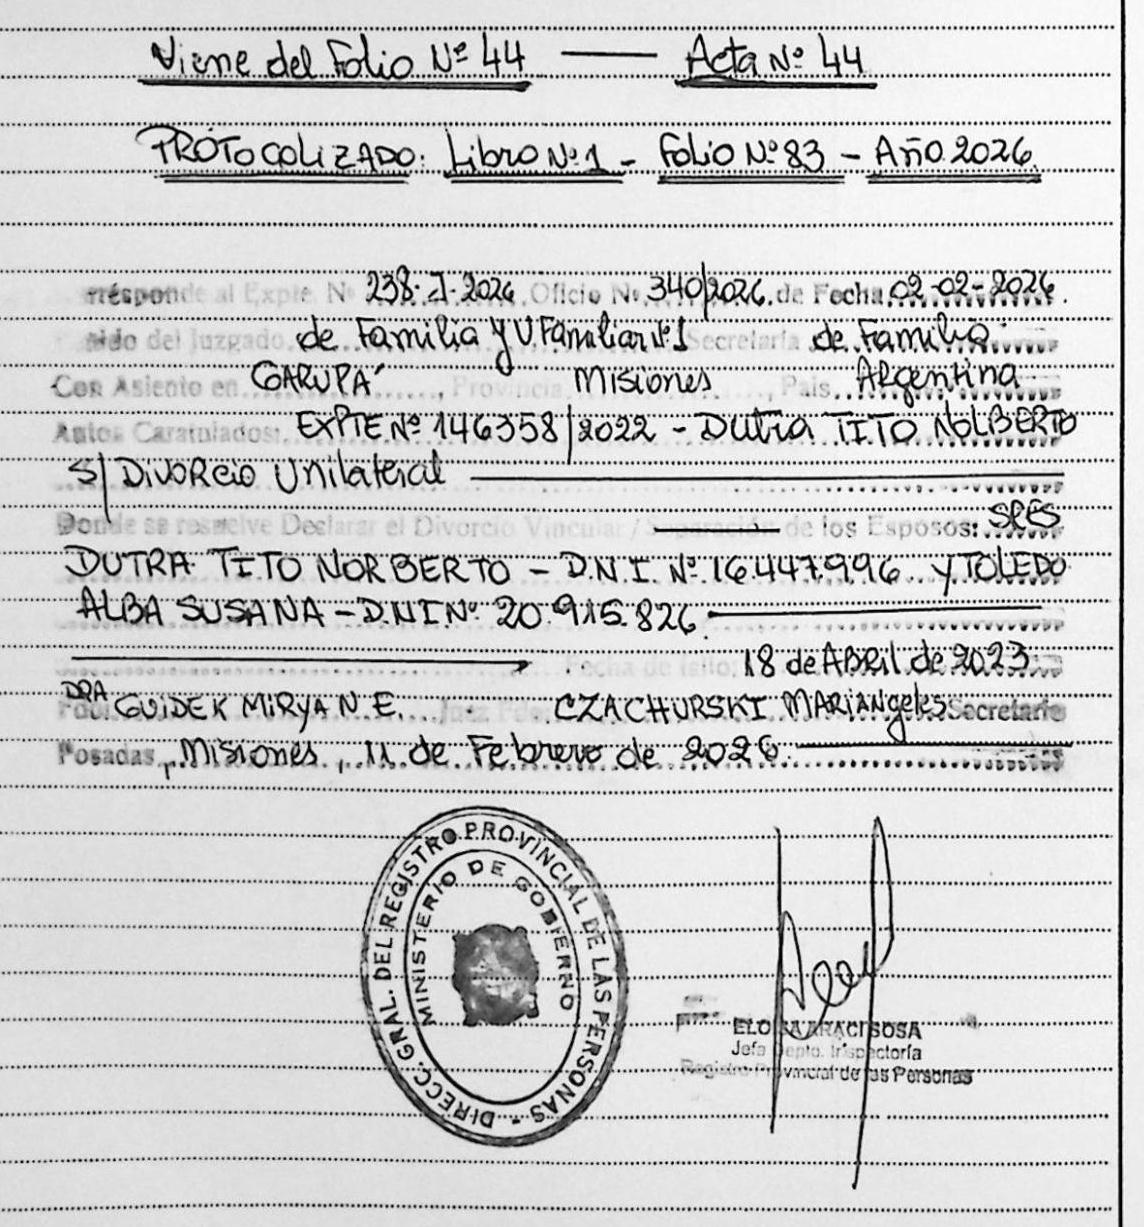 Viene del Folio Nº 44 —— Acta Nº 44
PROTOCOLIZADO: Libro Nº 1 - Folio Nº 83 - Año 2026.
rrésponde al Expte. Nº 238-I-2026, Oficio Nº 340/2026. de Fecha 02-02-2026.
nido del Juzgado de Familia y V. Familiar Nº 1 Secretaría de Familia.
Con Asiento en GARUPÁ, Provincia Misiones, País Argentina
Autos Caratulados: EXPTE Nº 146358/2022 - Dutra TITO NOLBERTO
S/ DIVORCIO Unilateral
Donde se resuelve Declarar el Divorcio Vincular / Separación de los Esposos: SRES
DUTRA TITO NORBERTO - D.N.I. Nº 16.447.996 Y TOLEDO
ALBA SUSANA - D.N.I Nº 20.915.826
Fecha de fallo: 18 de ABRIL de 2023.
DRA GUIDEK MIRYAN. E. Juez CZACHURSKI MARIANGELES Secretario
Posadas, Misiones, 11 de Febrero de 2026.
DIRECC. GRAL. DEL REGISTRO PROVINCIAL DE LAS PERSONAS -
MINISTERIO DE GOBIERNO
ELOISA ARACI SOSA
Jefa Depto. Inspectoría
Registro Provincial de las Personas